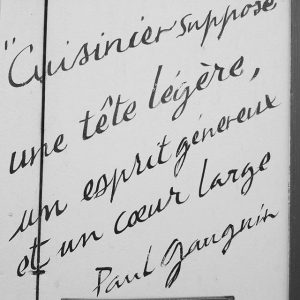 "Cuisinier suppose
une tête légère,
un esprit généreux
et un cœur large
Paul Gauguin